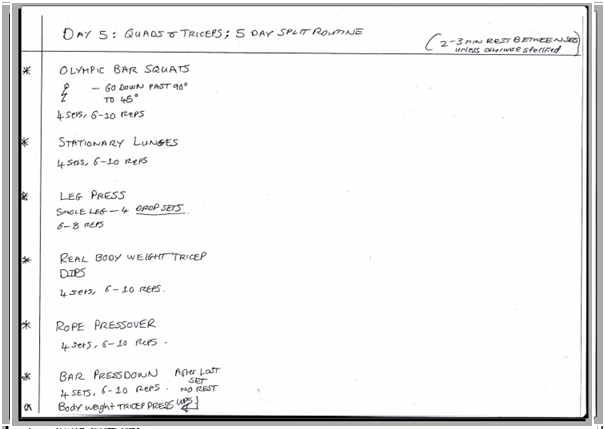 DAY 5: QUADS & TRICEPS; 5 DAY SPLIT ROUTINE
(2-3 MIN REST BETWEEN SETS
unless otherwise specified)
* OLYMPIC BAR SQUATS
- GO DOWN PAST 90°
TO 45°
4 SETS, 6-10 REPS
* STATIONARY LUNGES
4 SETS, 6-10 REPS
* LEG PRESS
SINGLE LEG - 4 DROP SETS
6-8 REPS
* REAL BODY WEIGHT TRICEP
DIPS
4 SETS, 6-10 REPS.
* ROPE PRESSOVER
4 SETS, 6-10 REPS.
* BAR PRESSDOWN After Last
SET
4 SETS, 6-10 REPS. NO REST
Body weight TRICEP PRESS UPS